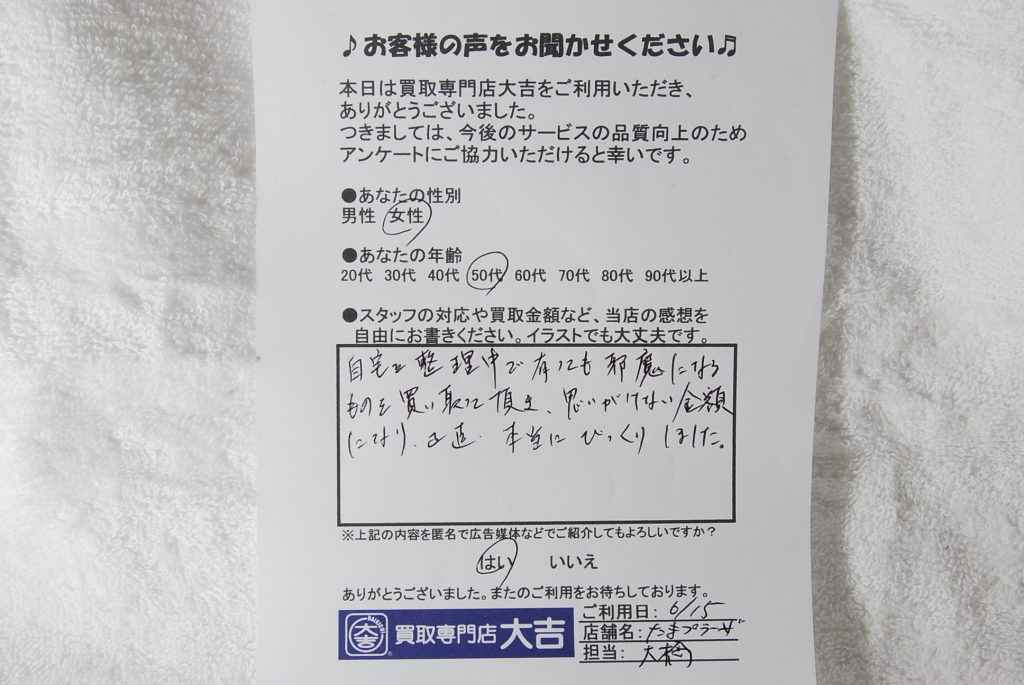 ♪お客様の声をお聞かせください♬
本日は買取専門店大吉をご利用いただき、
ありがとうございました。
つきましては、今後のサービスの品質向上のため
アンケートにご協力いただけると幸いです。
●あなたの性別
男性 女性
●あなたの年齢
20代 30代 40代 50代 60代 70代 80代 90代以上
●スタッフの対応や買取金額など、当店の感想を
自由にお書きください。イラストでも大丈夫です。
自宅を整理中で有っても邪魔になる
ものを買い取って頂き、思いがけない金額
になり、正直、本当にびっくりしました。
※上記の内容を匿名で広告媒体などでご紹介してもよろしいですか？
はい いいえ
ありがとうございました。またのご利用をお待ちしております。
大吉 買取専門店 大吉
ご利用日： 6/15
店舗名： たまプラーザ
担当： 大橋